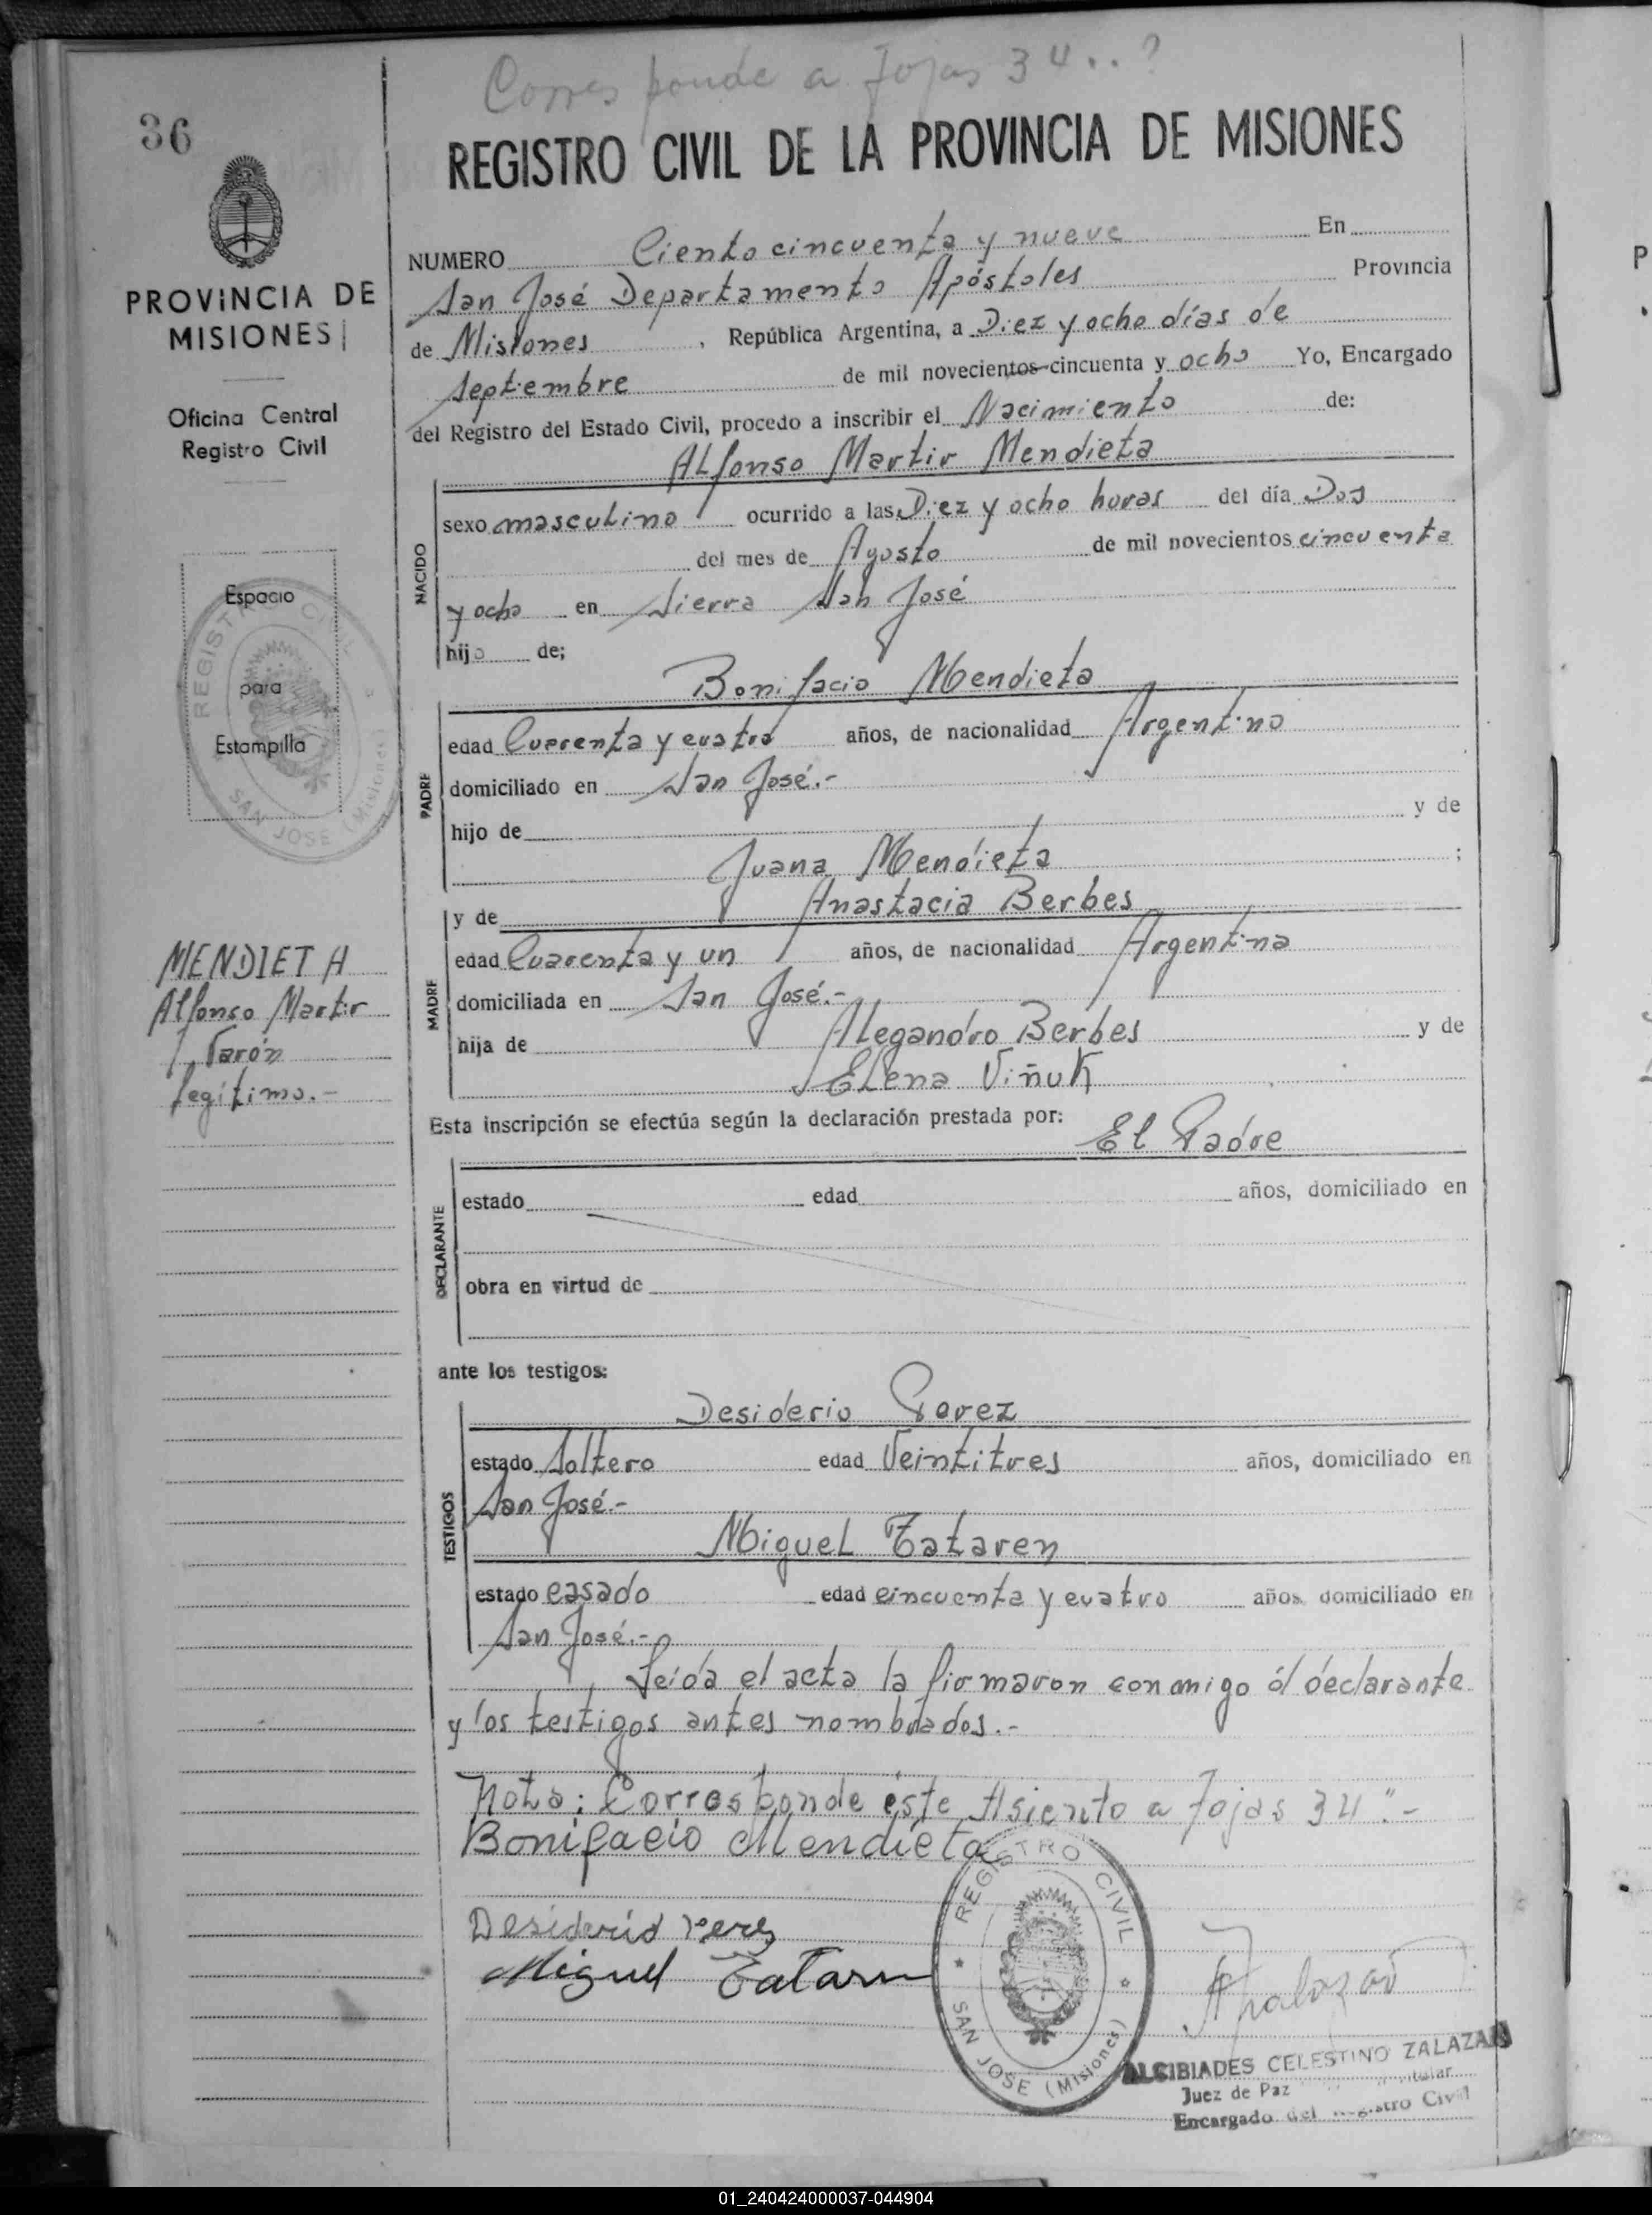 Corresponde a fojas 34..?
36
REGISTRO CIVIL DE LA PROVINCIA DE MISIONES
PROVINCIA DE
MISIONES
Oficina Central
Registro Civil
Espacio
para
Estampilla
REGISTRO CIVIL
SAN JOSE (Misiones)
MENDIETA
Alfonso Martir
Varón
legítimo.-
NUMERO Ciento cincuenta y nueve En
San José Departamento Apóstoles Provincia
de Misiones , República Argentina, a Diez y ocho días de
septiembre de mil novecientos cincuenta y ocho Yo, Encargado
del Registro del Estado Civil, procedo a inscribir el Nacimiento de:
Alfonso Martir Mendieta
NACIDO
sexo masculino ocurrido a las Diez y ocho horas del día Dos
del mes de Agosto de mil novecientos cincuenta
y ocho en Sierra San José
hijo de;
Bonifacio Mendieta
PADRE
edad Cuarenta y cuatro años, de nacionalidad Argentino
domiciliado en San José.-
hijo de y de
Juana Mendieta ;
y de Anastacia Berbes
MADRE
edad Cuarenta y un años, de nacionalidad Argentina
domiciliada en San José.-
hija de Alegandro Berbes y de
Elena Viñuk
Esta inscripción se efectúa según la declaración prestada por:
El Padre
DECLARANTE
estado edad años, domiciliado en
obra en virtud de
ante los testigos:
Desiderio Perez
TESTIGOS
estado Soltero edad Veintitres años, domiciliado en
San José.-
Miguel Tataren
estado casado edad cincuenta y cuatro años, domiciliado en
San José.-
Leída el acta la firmaron conmigo él declarante
y los testigos antes nombrados.-
Nota: Corresponde éste Asiento a fojas 34".-
Bonifacio Mendieta
Desiderio Perez
Miguel Tataren
REGISTRO CIVIL
SAN JOSE (Misiones)
ALCIBIADES CELESTINO ZALAZAR
Juez de Paz
Encargado del Registro Civil
01_240424000037-044904